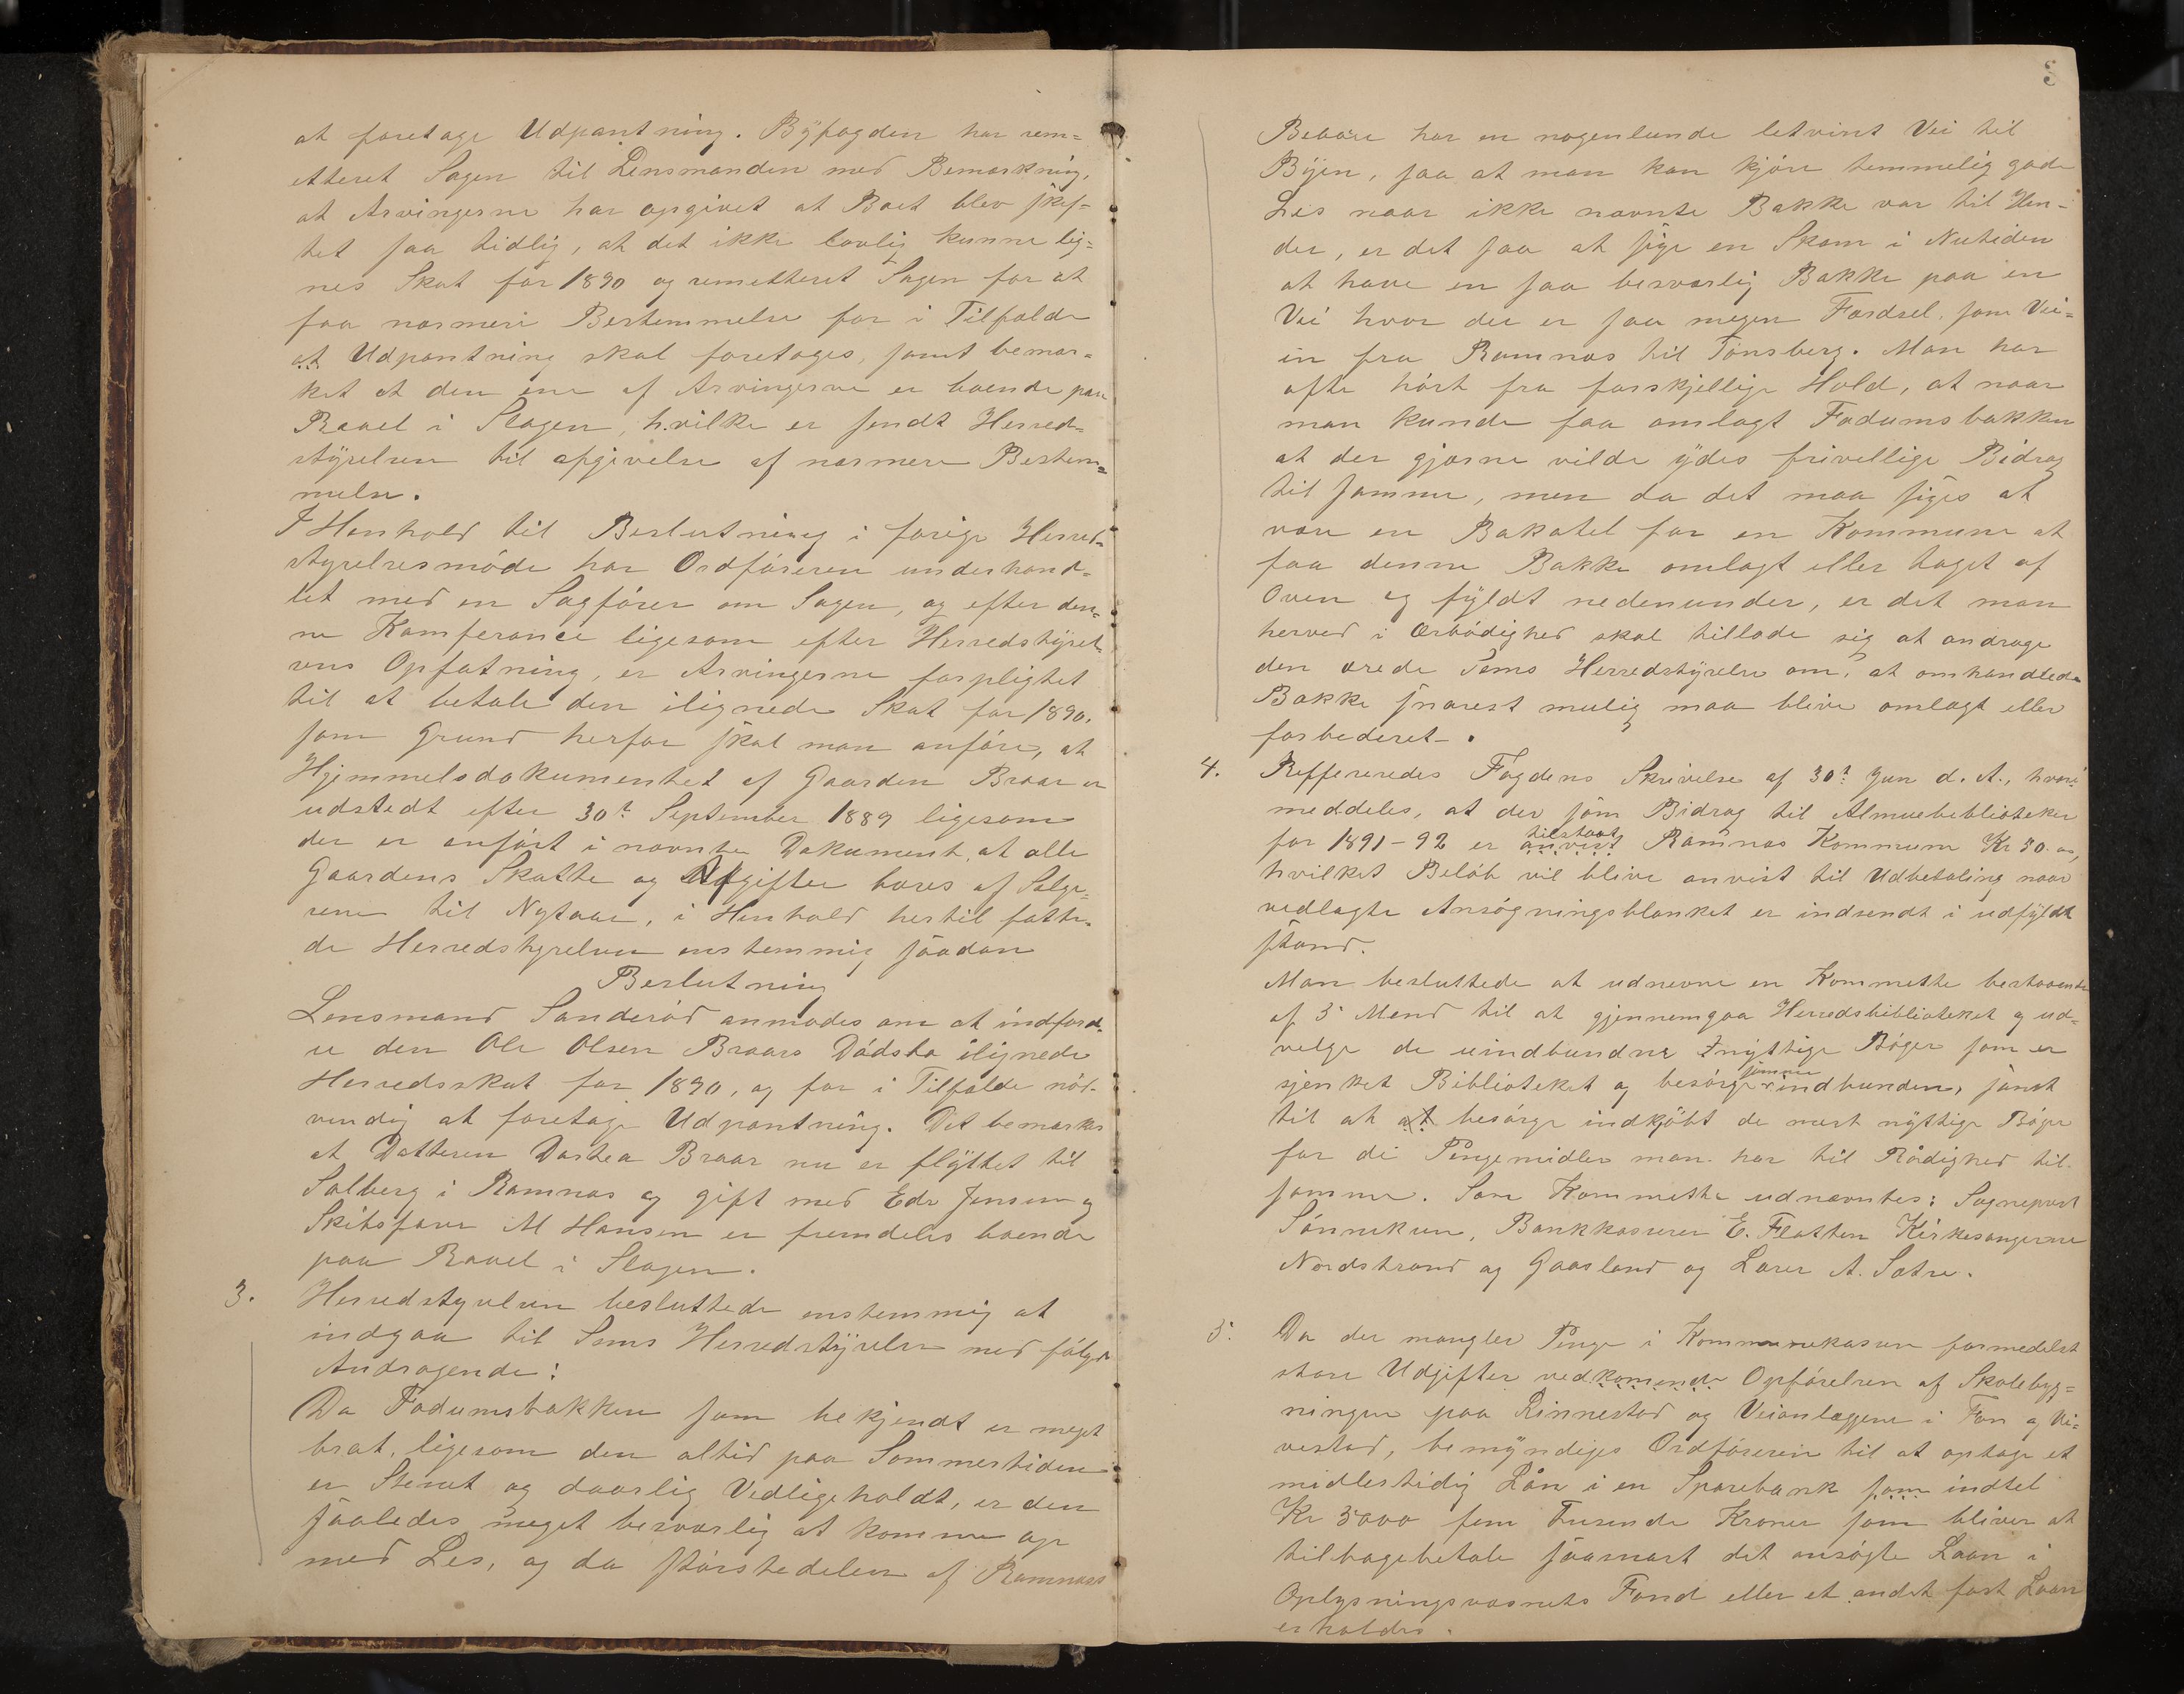 at foretage Udpantning. Byfogden har rem=
etteret Sagen til Lensmanden med Bemærkning,
at Arvingerne har opgivet at Boet blev skif=
tet saa tidlig, at det ikke lovlig kunne lig=
nes Skat for 1890 og remetteret Sagen for at
faa nærmere Bestemmelse for i Tilfælde
at Udpantning skal foretages, samt bemær=
ket at den ene af Arvingerne er boende paa
Ravel i Slagen, hvilke er sendt Herred=
styrelsen til afgivelse af nærmere Bestem=
melse.
I Henhold til Beslutning i forige Herred=
styrelsesmøde har Ordføreren underhand=
let med en Sagfører om Sagen, og efter den=
ne Konferance ligesom efter Herredstyrel=
sens Opfatning, er Arvingerne forpligtet
til at betale den ilignede Skat for 1890.
som Grund herfor skal man anføre, at
Hjemmelsdokumentet af Gaarden Braar er
udstedt efter 30te September 1889 ligesom
der er anført i nævnte Dokument, at alle
Gaardens Skatte og Afgifter bæres af Sælge=
rene til Nytaar, i Henhold hertil fatte=
de Herredstyrelsen enstemmig saadan
Beslutning
Lensmand Sanderød anmodes om at indford=
re den Ole Olsen Braars Dødsbo ilignede
Herredsskat for 1890, og for i Tilfælde nød=
vendig at foretage Udpantning. Det bemærkes
at Datteren Dorthea Braar nu er flyttet til
Solberg i Ramnæs og gift med Edv Jensen og
Skibsfører M Hansen er fremdeles boende
paa Ravel i Slagen.
3. Herredstyrelsen besluttede enstemmig at
indgaa til Sems Herredstyrelse med følgde
Andragende:
Da Fadumsbakken som bekjendt er meget
brat, ligesom den altid paa Sommertiden
er Stenet og daarlig Vedligeholdt, er den
saaledes meget besværlig at komme op
med Les, og da størstedelen af Ramnæss
3
Beboere har en nogenlunde letvint Vei til
Byen, saa at man kan kjøre temmelig gode
Les naar ikke nævnte Bakke var til Hin=
der, er det saa at sige en Skam i Nutiden
at have en saa besværlig Bakke paa en
Vei hvor der er saa megen Færdsel, som Vei=
en fra Ramnæs til Tønsberg. Man har
ofte hørt fra forskjellige Hold, at naar
man kunde faa omlagt Fadumsbakken
at der gjærne vilde ydes frivellige Bidrag
til samme, men da det maa siges at
være en Bakatel for en Kommune at
faa denne Bakke omlagt eller taget af
Oven og fyldt nedenunder, er det man
herved i Ærbødighed skal tillade sig at andrage
den ærede Sems Herredstyrelse om, at omhandlede
Bakke snarest mulig maa blive omlagt eller
forbederet.
4. Reffereredes Fogdens Skrivelse af 30te Jun d. A., hvori
meddeles, at der som Bidrag til Almuebiblioteker
tilstaat
for 1891-92 er anvist Ramnæs Kommune Kr 30.00,
hvilket Beløb vil blive anvist til Udbetaling naar
vedlagte Ansøgningsblanket er indsendt i udfyldt
stand.
Man besluttede at udnevne en Kommette bestaaende
af 5 Mend til at gjennemgaa Herredsbiblioteket og ud=
velge de uindbundne nyttige Bøger som er
samme
sjenket Biblioteket og besørge indbunden, samt
til at at besørge indkjøbt de mest nyttige Bøger
for de Pengemidler man har til Rådighed til
samme. Som Kommette udnævntes: Sogneprest
Sønniksen, Bankkasserer E. Flatten Kirkesangerne
Nordstrand og Gaasland og Lærer A. Sætre.
5. Da der mangler Penge i Kommunekassen formedelst
store Udgifter vedkomende Opførelsen af Skolebyg=
ningen paa Rinnestad og Veianlæggene i Fon og Vi=
vestad, bemyndiges Ordføreren til at optage et
midlertidig Lån i en Sparebank som indtil
Kr 5000 fem Tusende Kroner som bliver at
tilbagebetale saasnart det ansøgte Laan i
Oplysningsvæsnets Fond eller et andet fast Laan
erholdes.